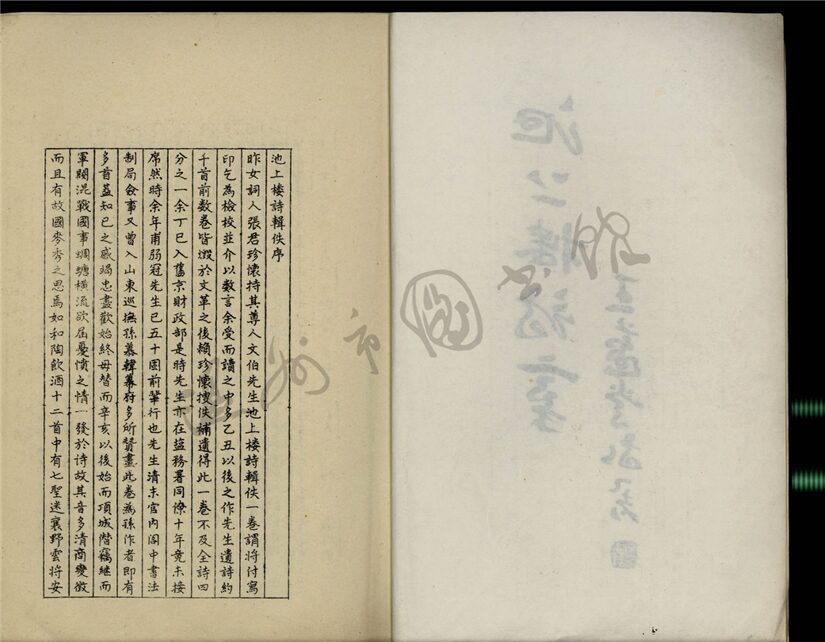 池上楼詩輯佚序
昨女詞人張君珍懷持其尊人文伯先生池上楼詩輯佚一卷謂將付寫
印乞為檢校並介以數言余受而讀之中多乙丑以後之作先生遺詩約
千首前數卷皆燬於文革之後賴珍懷搜佚補遺得此一卷不及全詩四
分之一余丁巳入舊京財政部是時先生亦在鹽務署同僚十年竟未接
席然時余年甫弱冠先生已五十固前輩行也先生清末官内阁中書法
制局僉事又曾入山東巡撫孫慕韓幕府多所贊畫此卷為孫作者即有
多首蓋知己之感竭忠盡歡始終毋替而辛亥以後始而項城僭竊継而
軍閥混戰國事蜩螗橫流欲届憂憤之情一發於诗故其音多清商變徵
而且有故國麥秀之思焉如和陶飲酒十二首中有七聖迷襄野雲將安